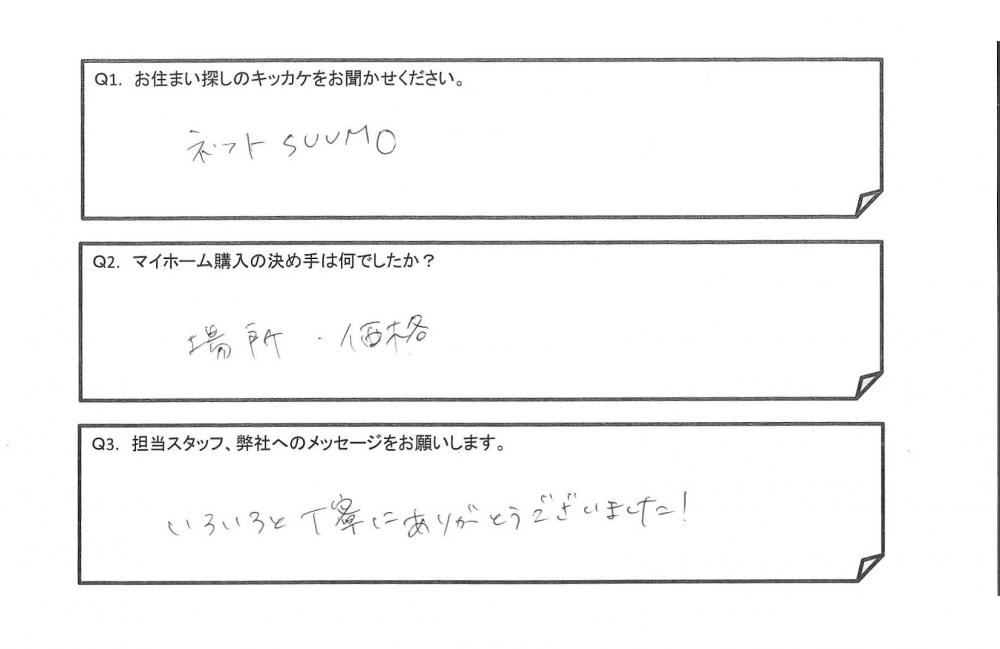 Q1. お住まい探しのキッカケをお聞かせください。
ネット SUUMO
Q2. マイホーム購入の決め手は何でしたか？
場所・価格
Q3. 担当スタッフ、弊社へのメッセージをお願いします。
いろいろと丁寧にありがとうございました!